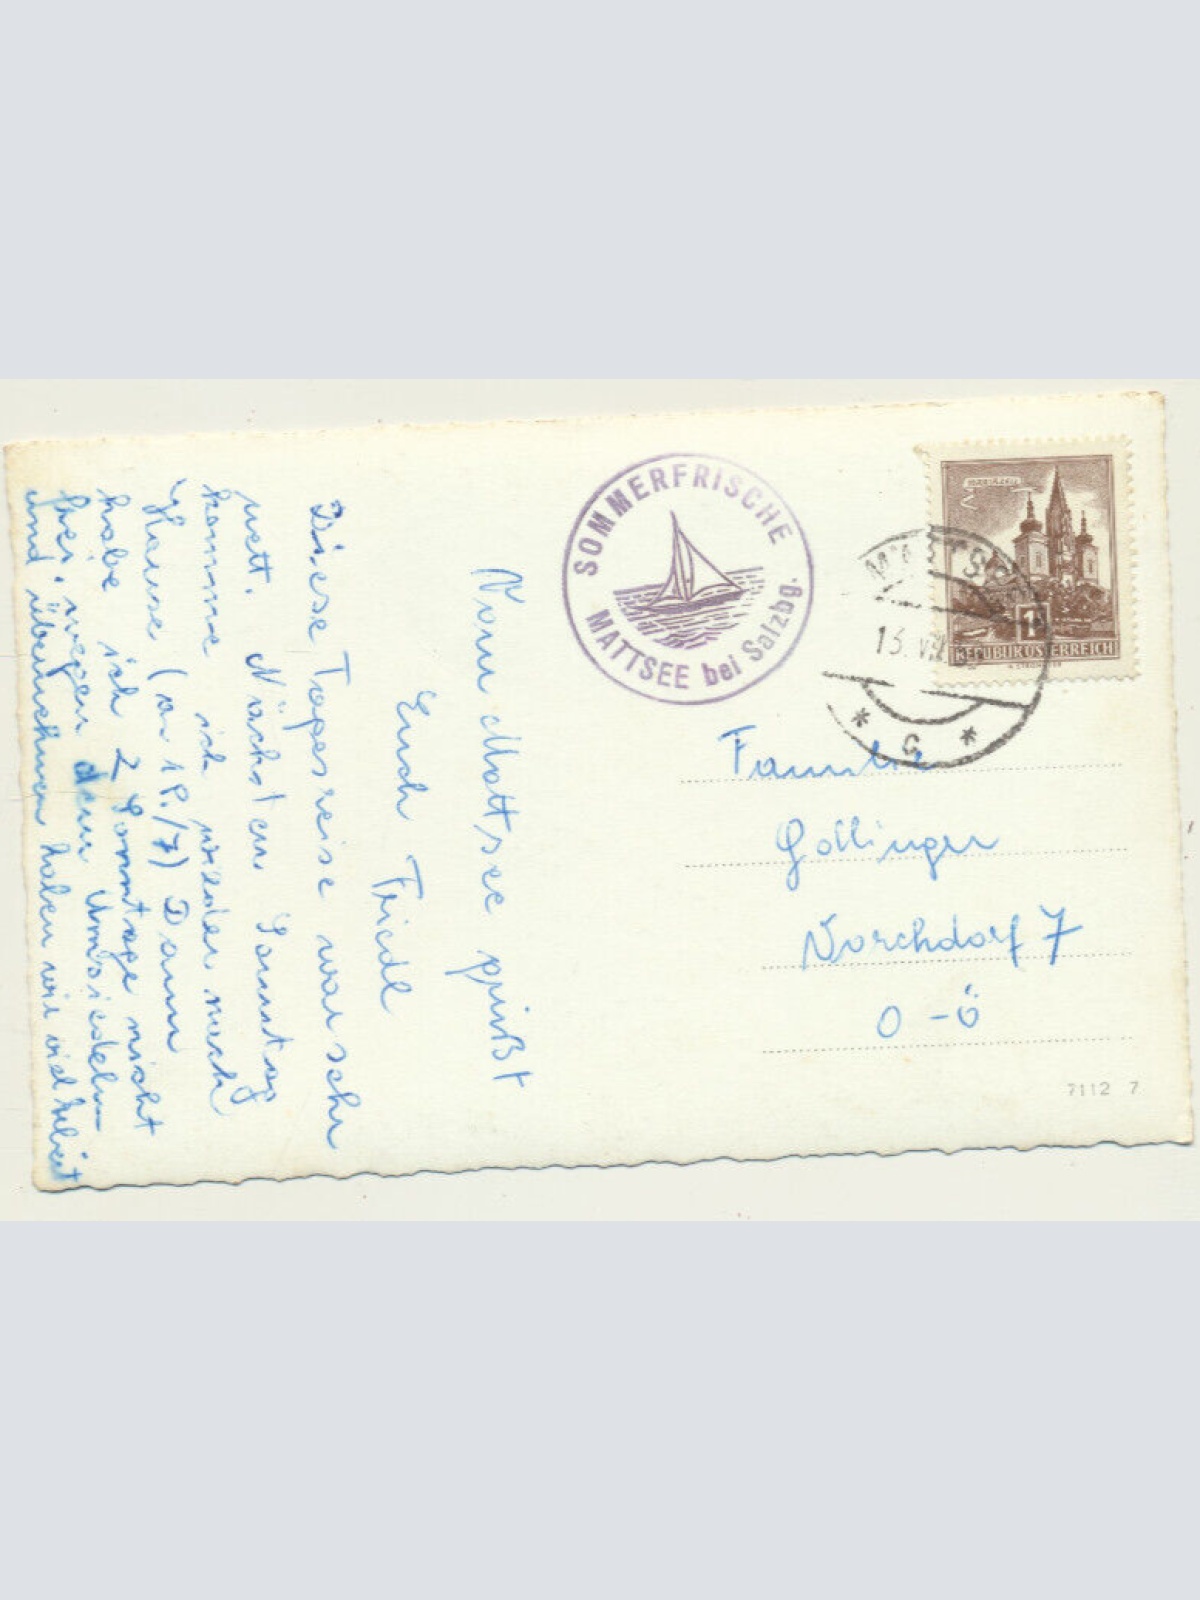 SOMMERFRISCHE
MATTSEE bei Salzbg.
MARIAZELL
1
REPUBLIK ÖSTERREICH
MATTSEE
13. VII.
* c *
Vom Mattsee grüßt
Euch Friedl
Diese Tagesreise war sehr
nett. Nächsten Sonntag
komme ich wieder nach
Hause Dann
habe ich 2 Sonntage nicht
frei. wegen dem Umsiedeln
und übernehmen haben wir viel Arbeit
Familie
Gollinger
Vorchdorf 7
O-Ö
7112 7